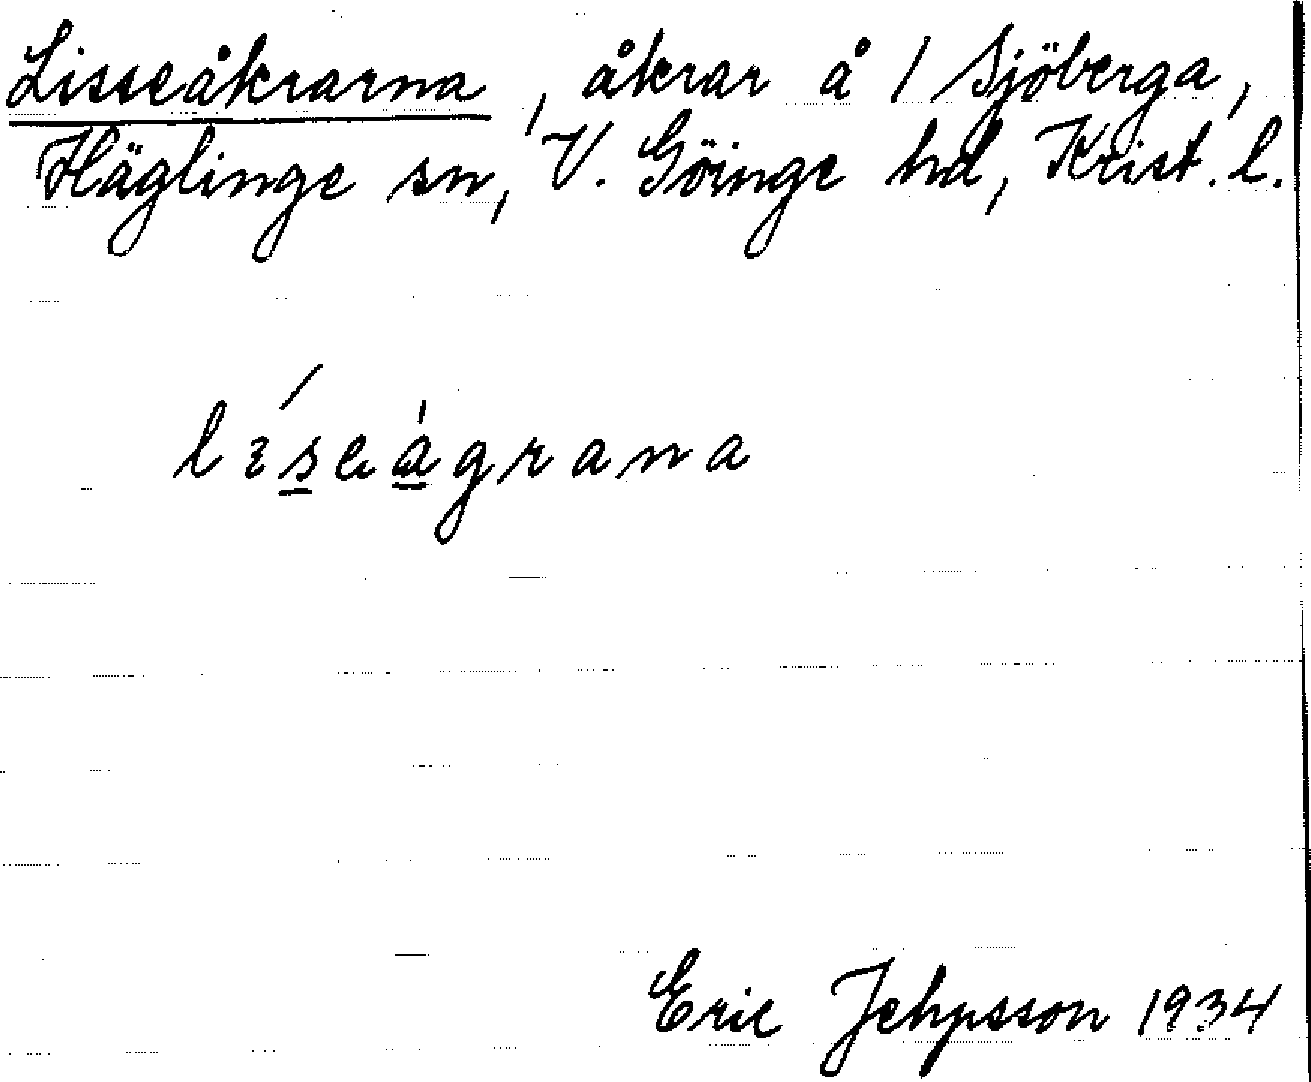 Lisseåkrarna, åkrar å 1 Sjöberga,
Häglinge sn, V. Göinge hd, Krist. l.
lise̬ágrana
Eric Jehpsson 1934